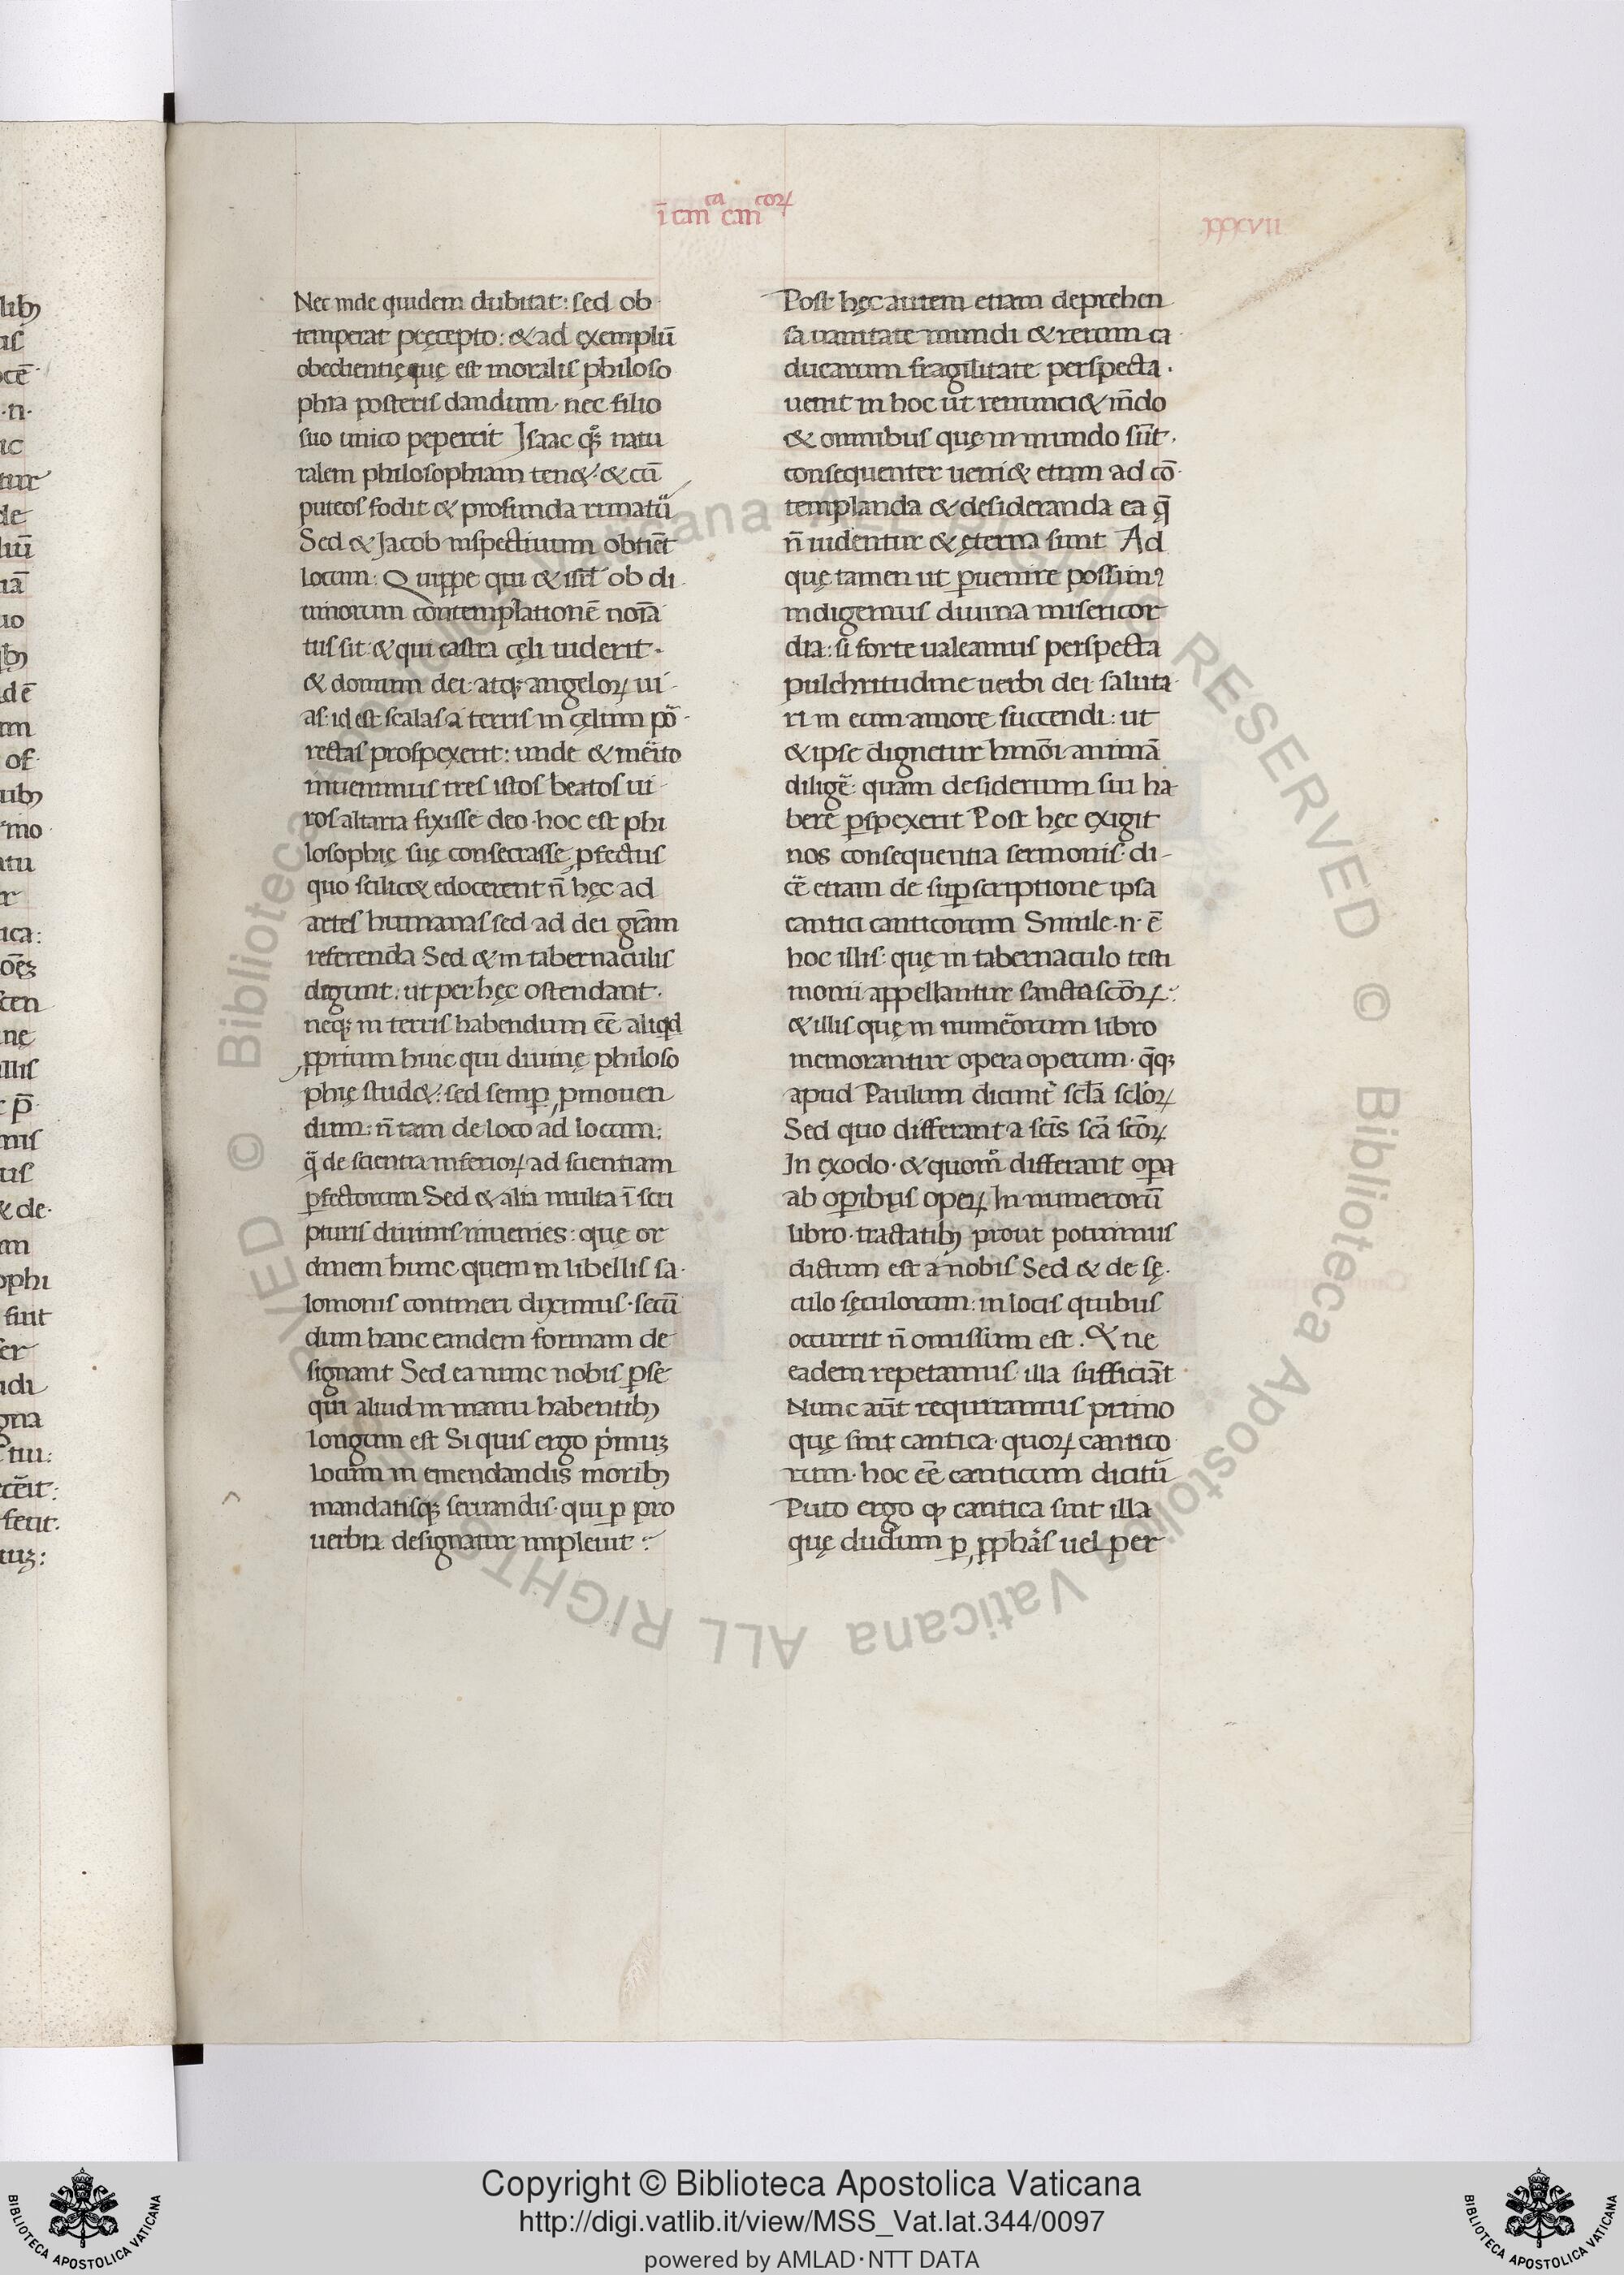 ī cān̄ca cm̄coꝝ
xxxvii
Nec inde quidem dubitat: sed ob
temperat pręcepto: & ad exemplū
obedientięquę est moralis philoso
phia posteris dandum· nec filio
suo unico pepercit Isaac q̊ꝫ natu
ralem philosophiam ten&· & cū
puteos fodit & profunda rimatur̄
Sed & Jacob inspectiuum obtin̄et
locum: Quippe qui & isrl̄ ob di
uinorum contemplationē noīa
tus sit· & qui castra cęli uiderit·
& domum dei· atqꝫ angeloꝝ ui
as· id est scalas a terris in cęlum po
rectas prospexerit: unde & merito
inuenimus tres istos beatos ui
ros altaria fixisse deo· hoc est phi
losophię suę consecrasse ꝓfectus
quo scilic& edocerent n̄ hęc ad
artes humanas sed ad dei gr̄am
referenda Sed & in tabernaculis
degunt: ut per hęc ostendant·
neqꝫ in terris habendum eē aliqd
ꝓprium huic qui diuinę philoso
phię stud&: sed semꝑ ꝓmouen
dum: n̄ tam de loco ad locum:
q̄ de scientia inferioꝝ ad scientiam
ꝑfectorum Sed & alia multa ī scri
pturis diuinis inuenies: quę or
dinem hunc quem in libellis sa
lomonis contineri diximus· secū
dum hanc eandem formam de
signant Sed ea nunc nobis ꝑse
qui aliud in manu habentibꝫ
longum est Si quis ergo p̄muꝫ
locum in emendandis moribꝫ
mandatisqꝫ seruandis· qui ꝑ pro
uerbia designatur impleuit :
Post hęc autem etiam deprehen
sa uanitate mundi & rerum ca
ducarum fragilitate perspecta·
uenit in hoc ut renunci& mūdo
& omnibus quę in mundo sūt·
consequenter ueni& etiam ad cō
templanda & desideranda ea q̄
n̄ uidentur & ęterna sunt Ad
quę tamen ut ꝑuenire possimꝰ
indigemus diuina misericor
dia: si forte ualeamus perspecta
pulchritudine uerbi dei· saluta
ri in eum amore succendi: ut
& ipse dignetur hm̄oi animā
diligē: quam desiderium sui ha
bere ꝑspexerit Post hęc exigit
nos consequentia sermonis· di
cē etiam de suꝑscriptione ipsa
cantici canticorum Simile·n· ē
hoc illis: quę in tabernaculo testi
monii appellantur sancta scōꝝ:
& illis quę in numerorum libro
memorantur opera operum· q̄qꝫ
apud Paulum dicunt̄ scl̄a scloꝝ
Sed quo differant a scis scā scōꝝ
In exodo· & quom̊ differant oꝑa
ab oꝑibus opeꝝ In numerorū
libro· tractatibꝫ prout potuimus
dictum est a nobis Sed & de sę
culo sęculorum: in locis quibus
occurrit n̄ omissum est· & ne
eadem repetamus illa sufficiāt
Nunc aūt requiramus primo
quę sint cantica· quoꝝ cantico
rum· hoc eē canticum dicitur̄
Puto ergo ꝙ cantica sint illa
quę dudum ꝑ ꝓphās uel per
Copyright © Biblioteca Apostolica Vaticana
http://digi.vatlib.it/view/MSS_Vat.lat.344/0097
powered by AMLAD·NTT DATA
BIBLIOTECA APOSTOLICA VATICANA
BIBLIOTECA APOSTOLICA VATICANA
© Biblioteca Apostolica Vaticana ALL RIGHTS RESERVED © Biblioteca Apostolica Vaticana ALL RIGHTS RESERVED